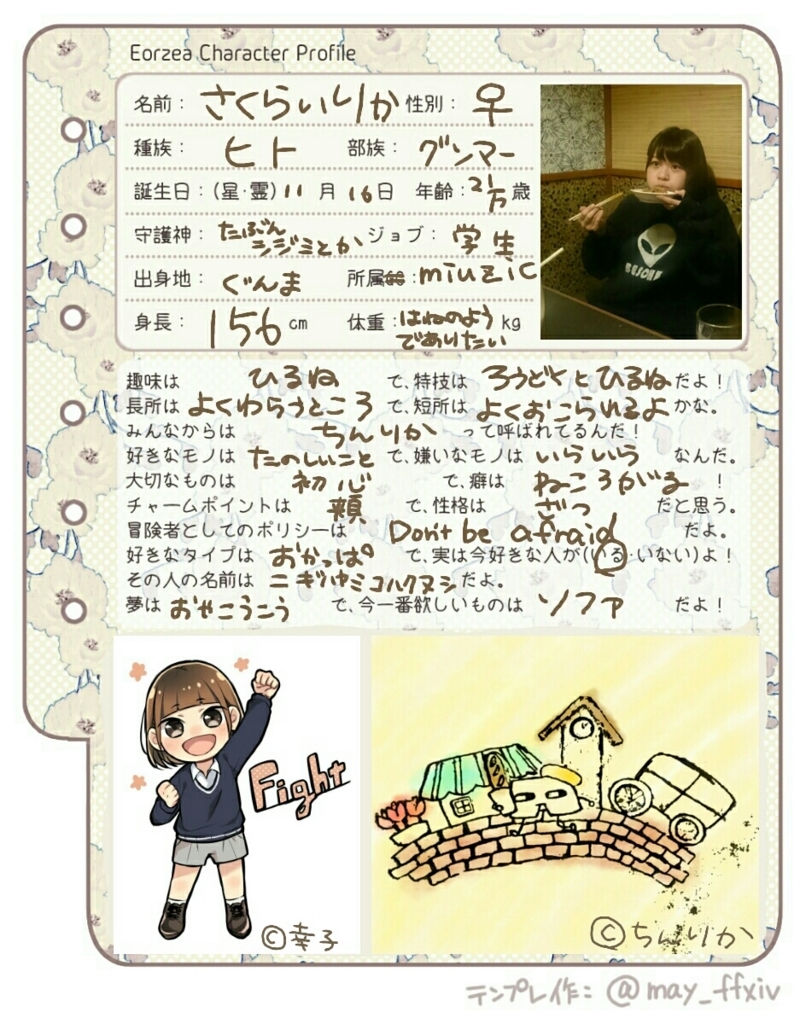 Eorzea Character Profile
名前： さくらいりか 性別： 早
種族： ヒト 部族： グンマー
誕生日：（星・霊）11 月 16日 年齢：21万歳
守護神： たぶんシジミとか ジョブ： 学生
出身地： ぐんま 所属：miuzic
身長： 156 cm 体重：はねのようでありたい kg
趣味は ひるね で、特技は ろうどくとひるねだよ！
長所は よくわらうところ で、短所は よくおこられるよ かな。
みんなからは ちんりか って呼ばれてるんだ！
好きなモノは たのしいこと で、嫌いなモノは いらいら なんだ。
大切なものは 初心 で、癖は ねころがる ！
チャームポイントは 頬 で、性格は ざつ だと思う。
冒険者としてのポリシーは Don't be afraid だよ。
好きなタイプは おかっぱ で、実は今好きな人が（いる・いない）よ！
その人の名前は ニギハヤミコハクヌシだよ。
夢は おやこうこう で、今一番欲しいものは ソファ だよ！
Fight
©幸子
©ちんりか
テンプレ作：@may_ffxiv